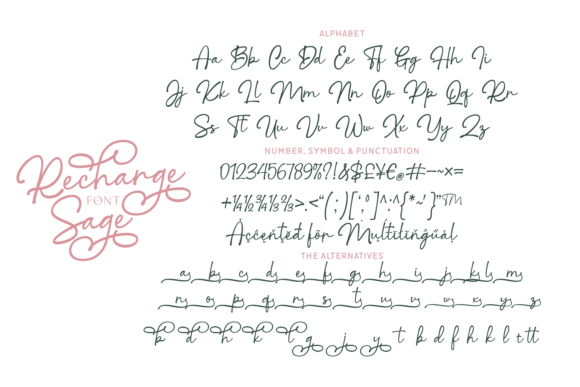 Rechange
FONT
Sage
ALPHABET
Aa Bb Cc Dd Ee Ff Gg Hh Ii
Jj Kk Ll Mm Nn Oo Pp Qq Rr
Ss Tt Uu Vv Ww Xx Yy Zz
NUMBER, SYMBOL & PUNCTUATION
0123456789%?!&$£¥€@#—–×=
+¼½¾⅓⅔>.<“(;)[‘,º]^:^{*~'}”™
Accented for Multilingual
THE ALTERNATIVES
a b c d e f g h i j k l m
n o p q r s t u v w x y z
b d h k l g j y t b d f h k l t tt